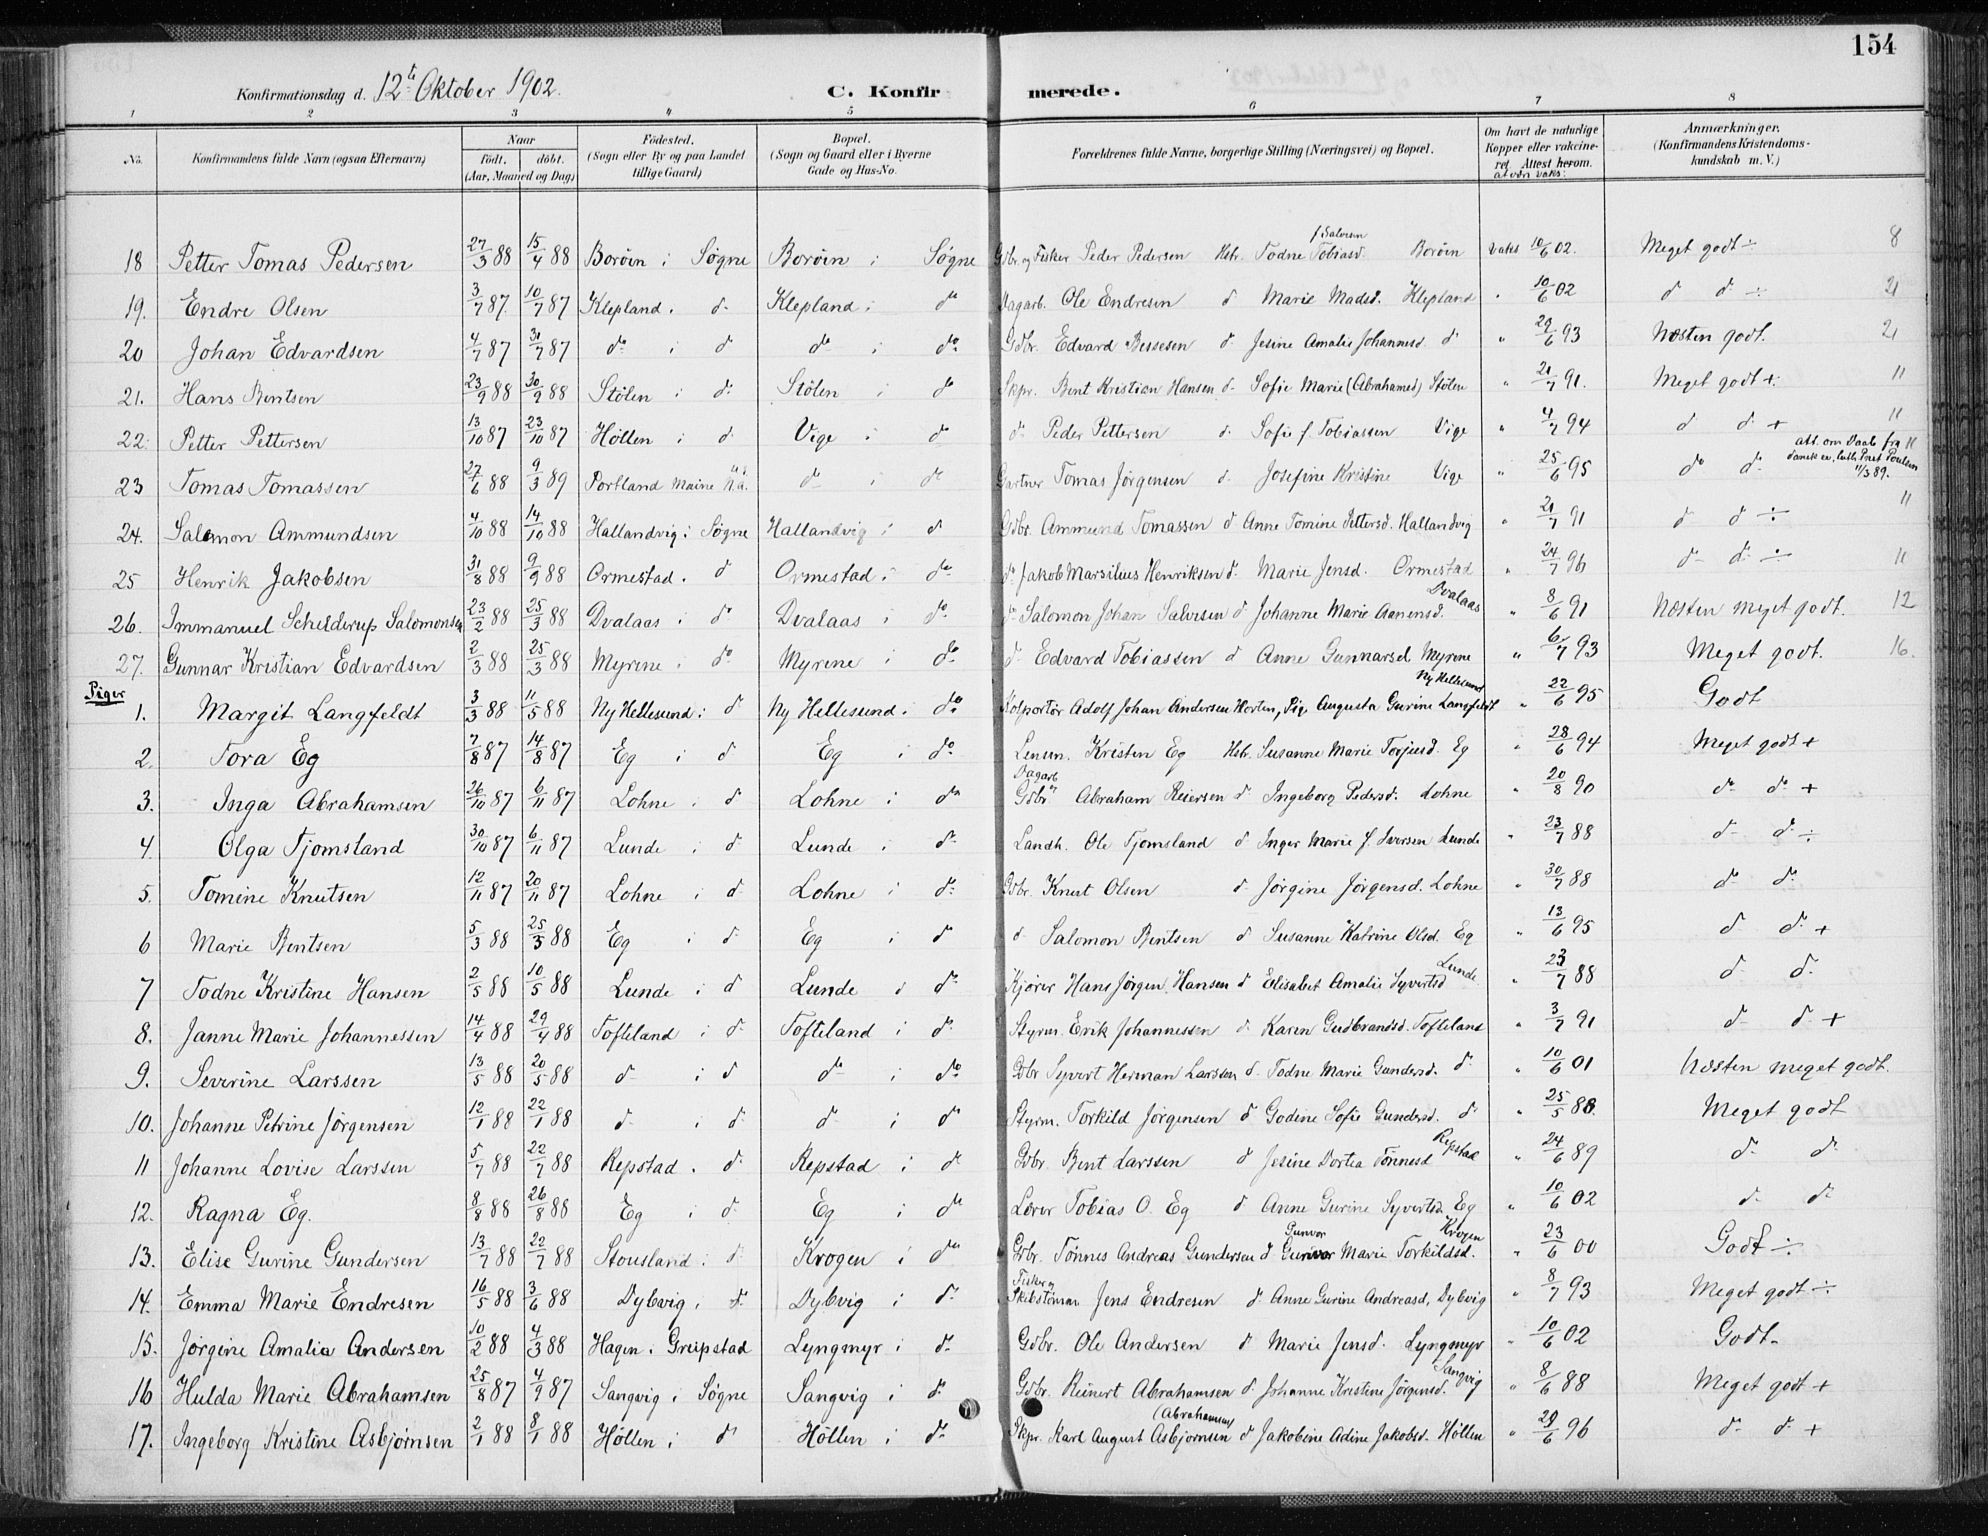 154
Konfirmationsdag d. 12te Oktober 1902. C. Konfirmerede.
1 2 3 4 5 6 7 8
No. Konfirmandens fulde Navn (ogsaa Efternavn) Naar født. døbt. (Aar, Maaned og Dag) Fødested. (Sogn eller By og paa Landet tillige Gaard) Bopæl. (Sogn og Gaard eller i Byerne Gade og Hus-No. Forældrenes fulde Navne, borgerlige Stilling (Næringsvei) og Bopæl. Om havt de naturlige Kopper eller vaccineret. Attest herom. Anmærkninger. (Konfirmandens Kristendomskundskab m. V.)
18 Petter Tomas Pedersen 27/3 88 15/4 88 Borøen i Søgne Borøen i Søgne Gdbr. og Fisker Peder Pedersen Hstr. Todne Tobiasd. f. Salvesen Borøen vaks 10/6 02. Meget godt ÷ 8
19. Endre Olsen 3/7 87. 10/7 87 Klepland i do Klepland i do Dagarb. Ole Endresen do Marie Madsd. Klepland " 10/6 02 do do ÷ 21
20 Johan Edvardsen 4/7 87 31/7 87 do i do do i do Gdbr. Edvard Bessesen do Jesine Amalie Johannesd. do " 29/6 93 Næsten godt. 21
21. Hans Bentsen 23/9 88 30/9 88 Stølen i do Stølen i do Skpr. Bent Kristian Hansen do Sofie Marie (Abrahamsd) Stølen " 21/7 91. Meget godt +. 11
22. Petter Pettersen 13/10 87 23/10 87 Høllen i do Vige i do do Peder Pettersen do Sofie f. Tobiassen Vige " 4/7 94 do do + 11
23 Tomas Tomassen 27/6 88 9/3 89 Portland Maine N.A. do i do Gartner Tomas Jørgensen do Josefine Kristine Vige " 25/6 95 do do att. om Daab fra dansk ev. luth. Prest Poulsen 11/3 89. 11
24. Salomon Ammundsen 4/10 88 14/10 88 Hallandvig i Søgne Hallandvig i do Gdbr. Ammund Tomassen do Anne Tomine Pettersd. Hallandvig " 21/7 91 do do ÷ 11
25 Henrik Jakobsen 31/8 88 9/9 88 Ormestad i do Ormestad i do do Jakob Marsilius Henriksen do Marie Jensd. Ormestad " 24/7 96 do do ÷ 11
26. Immanuel Schelderup Salomonsen 23/2 88 25/3 88 Dvalaas i do Dvalaas i do do Salomon Johan Salvesen do Johanne Marie Aanensd. Dvalaas " 8/6 91 Næsten meget godt. 12
27. Gunnar Kristian Edvardsen 2/3 88 25/3 88 Myrene i do Myrene i do do Edvard Tobiassen do Anne Gunnarsd. Myrene " 6/7 93 Meget godt. 16.
Piger
1. Margit Langfeldt 3/3 88 11/5 88 Ny Hellesund i do Ny Hellesund i do Kolportør Adolf Johan Andersen Horten, Pig. Augusta Gurine Langfeldt Ny Hellesund " 22/6 95 Godt
2. Tora Eg 7/8 87 14/8 87 Eg i do Eg i do Lensm. Kristen Eg Hstr. Susanne Marie Torjusd. Eg " 28/6 94 Meget godt +
3. Inga Abrahamsen 26/10 87 6/11 87 Lohne i do Lohne i do Dagarb. Gdbr. Abraham Reiersen do Ingeborg Pedersd. Lohne " 20/8 90 do do +
4. Olga Tjomsland 30/10 87 6/11 87 Lunde i do Lunde i do Landh. Ole Tjomsland do Inger Marie f. Iversen Lunde " 23/7 88 do do ÷
5. Tomine Knutsen 12/11 87 20/11 87 Lohne i do Lohne i do Gdbr. Knut Olsen do Jørgine Jørgensd. Lohne " 30/7 88 do do
6 Marie Bentsen 5/3 88 25/3 88 Eg i do Eg i do do Salomon Bentsen do Susanne Katrine Olsd. Eg " 13/6 95 do do +
7 Todne Kristine Hansen 2/5 88 10/5 88 Lunde i do Lunde i do Kjører Hans Jørgen Hansen do Elisabet Amalie Syvertsd Lunde " 23/7 88 do do
8. Janne Marie Johannessen 14/4 88 29/4 88 Tofteland i do Tofteland i do Styrm. Erik Johannessen do Karen Gudbrandsd. Tofteland " 3/7 91 do do +
9. Severine Larssen 13/5 88 20/5 88 do i do do i do Gdbr Syvert Herman Larssen do Todne Marie Gundersd. do " 10/6 01 Næsten meget godt.
10. Johanne Petrine Jørgensen 12/1 88 22/1 88 do i do do i do Styrm. Torkild Jørgensen do Godine Sofie Gundersd. do " 25/5 88. Meget godt
11 Johanne Lovise Larssen 5/7 88 22/7 88 Repstad i do Repstad i do Gdbr. Bent Larssen do Jesine Dortea Tønnesd Repstad " 24/6 89 do do
12. Ragna Eg. 8/8 88 26/8 88 Eg i do Eg i do Lærer Tobias O. Eg do Anne Gurine Syvertsd. Eg " 10/6 02 do do
13. Elise Gurine Gundersen 13/7 88 22/7 88 Stousland i do Krogen i do Gdbr. Tønnes Andreas Gundersen do Gunvor Marie Torkildsd. Krogen " 23/6 00 Godt ÷
14. Emma Marie Endresen 16/5 88 3/6 88 Dybvig i do Dybvig i do Fisker og Skibstømm Jens Endresen do Anne Gurine Andreasd. Dybvig " 8/7 93 Meget godt ÷
15. Jørgine Amalia Andersen 10/2 88 4/3 88 Hagen i Greipstad Lyngmyr i do Gdbr. Ole Andersen do Marie Jensd. Lyngmyr " 10/6 02 Godt
16 Hulda Marie Abrahamsen 25/8 87 4/9 87 Sangvig i Søgne Sangvig i do Gdbr. Reinert Abrahamsen do Johanne Kristine Jørgensd. Sangvig " 8/6 88 Meget godt +
17. Ingeborg Kristine Asbjørnsen 2/1 88 8/1 88 Høllen i do Høllen i do Skpr. Karl August Asbjørnsen (Abrahamsen) do Jakobine Adine Jakobsd. Høllen " 29/6 96 do do +